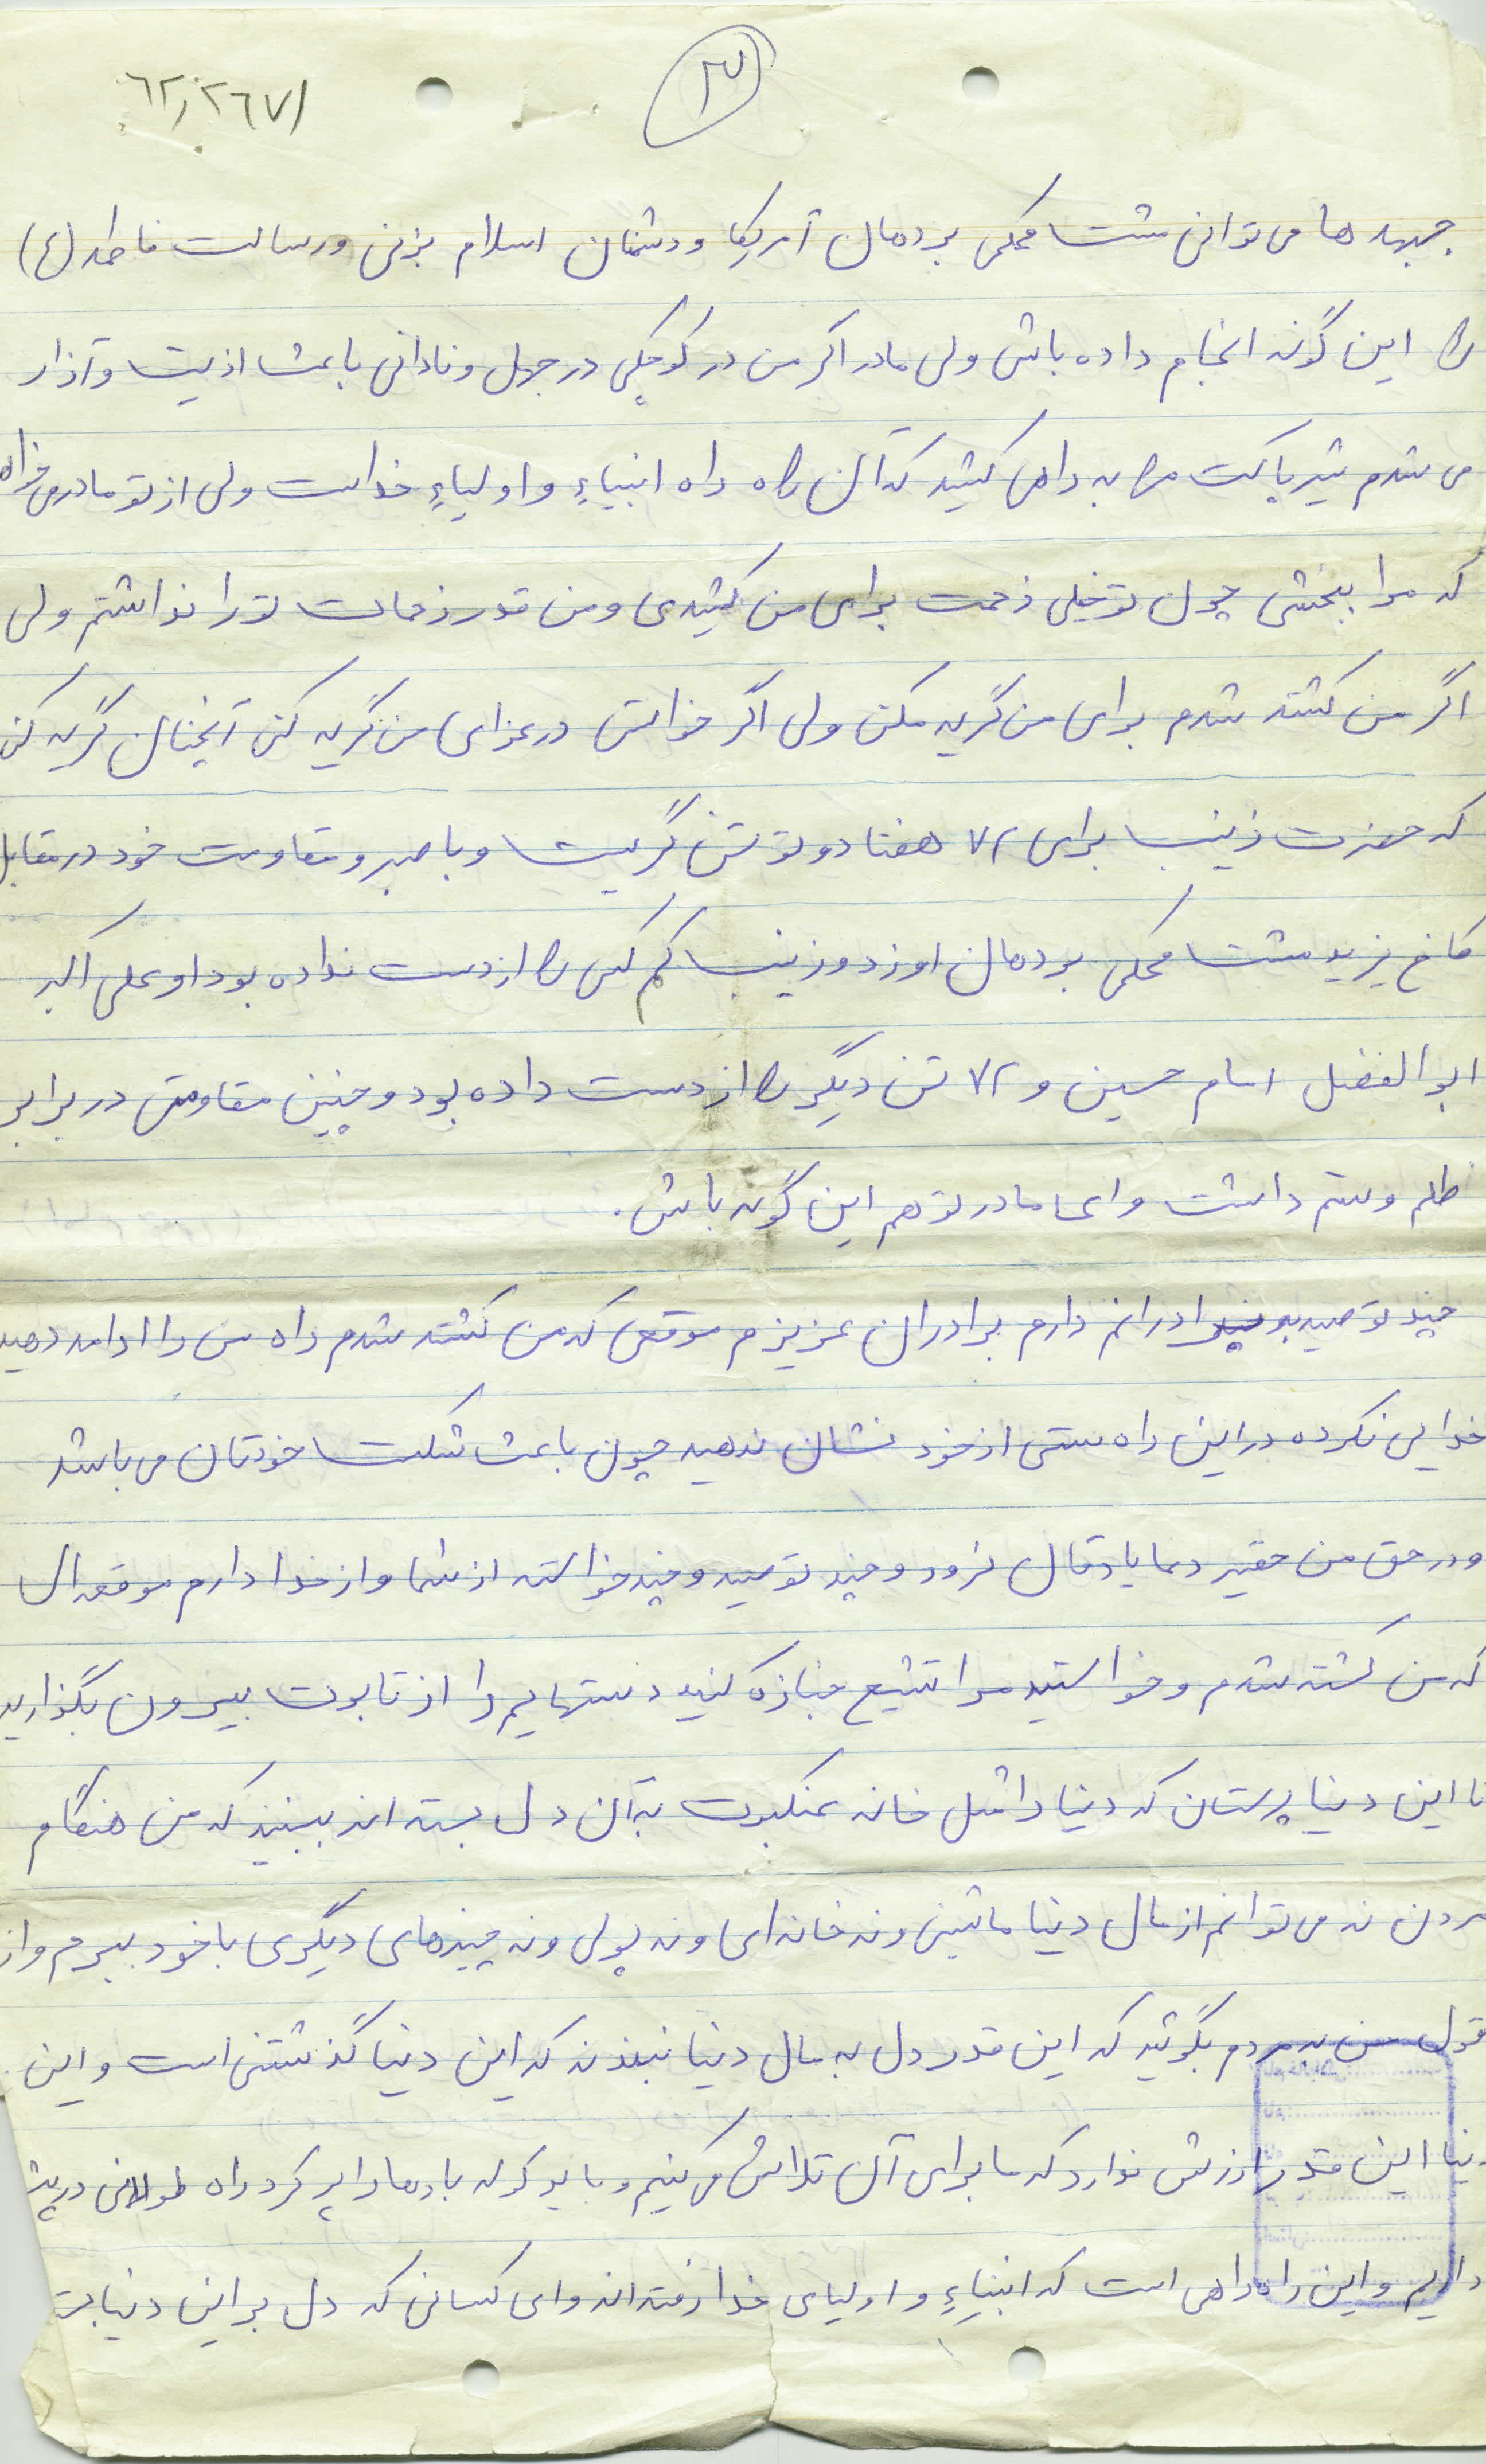 ۳
۶۲٫۲۶۷/
جبهه ها می توانی مشت محکمی بر دهان آمریکا و دشمنان اسلام بزنی و رسالت فاطمه (ع)
را این گونه انجام داده باشی ولی مادر اگر من در کوچکی در جهل و نادانی باعث اذیت و آزار
می شدم شیر پاکت مرا به راهی کشید که آن راه راه انبیاءِ و اولیاءِ خداست ولی از تو مادر می خواه
که مرا ببخشی چون تو خیلی زحمت برای من کشیدی و من قدر زحمات تو را نداشتم ولی
اگر من کشته شدم برای من گریه مکن ولی اگر خواستی در عزای من گریه کنی آنچنان گریه کن
که حضرت زینب برای ۷۲ هفتاد و دو تن گریست و با صبر و مقاومت خود در مقابل
کاخ یزید مشت محکمی بر دهان او زد و زینب کم کسی را از دست نداده بود او علی اکبر
ابوالفضل امام حسین و ۷۲ تن دیگر را از دست داده بود و چنین مقاومتی در برابر
ظلم و ستم داشت و ای مادر تو هم این گونه باش.
چند توصیه به برادرانم دارم برادران عزیزم موقعی که من کشته شدم راه من را ادامه دهید
خدایی نکرده در این راه سستی از خود نشان ندهید چون باعث شکست خودتان می باشد
و در حق من حقیر دعا یادتان نرود و چند توصیه و چند خواسته از شما و از خدا دارم موقعه ای
که من کشته شدم و خواستید مرا تشیع جنازه کنید دستهایم را از تابوت بیرون بگذارید
تا این دنیا پرستان که دنیا را مثل خانه عنکبوت به آن دل بسته اند ببینند که من هنگام
مردن نه می توانم از مال دنیا ماشین و نه خانه ای و نه پولی و نه چیزهای دیگری با خود ببرم و از
قول من به مردم بگوئید که این قدر دل به مال دنیا نبندند که این دنیا گذشتنی است و این
دنیا این قدر ارزش ندارد که ما برای آن تلاش می کنیم و باید کوله بارها را پر کرد راه طولانی در پیش
داریم و این راه راهی است که انبیاءِ و اولیای خدا رفته اند وای کسانی که دل بر این دنیا بست